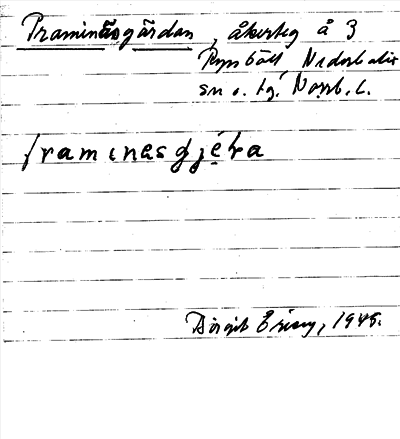 Framinäsgärdan, åkerteg å 3
Rysbält Nederkalix
sn o. tg. Norrb. l.
framinesgjéɽa
Birgit Ering, 1945.